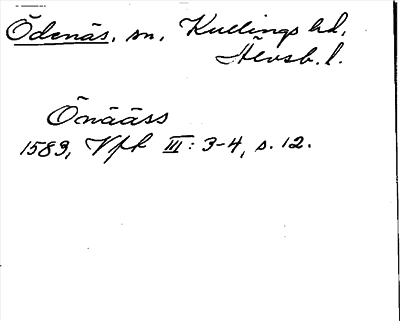 Ödenäs, sn, Kullings hd,
Älvsb. l.
Önääss
1583, Vfk III: 3-4, s. 12.